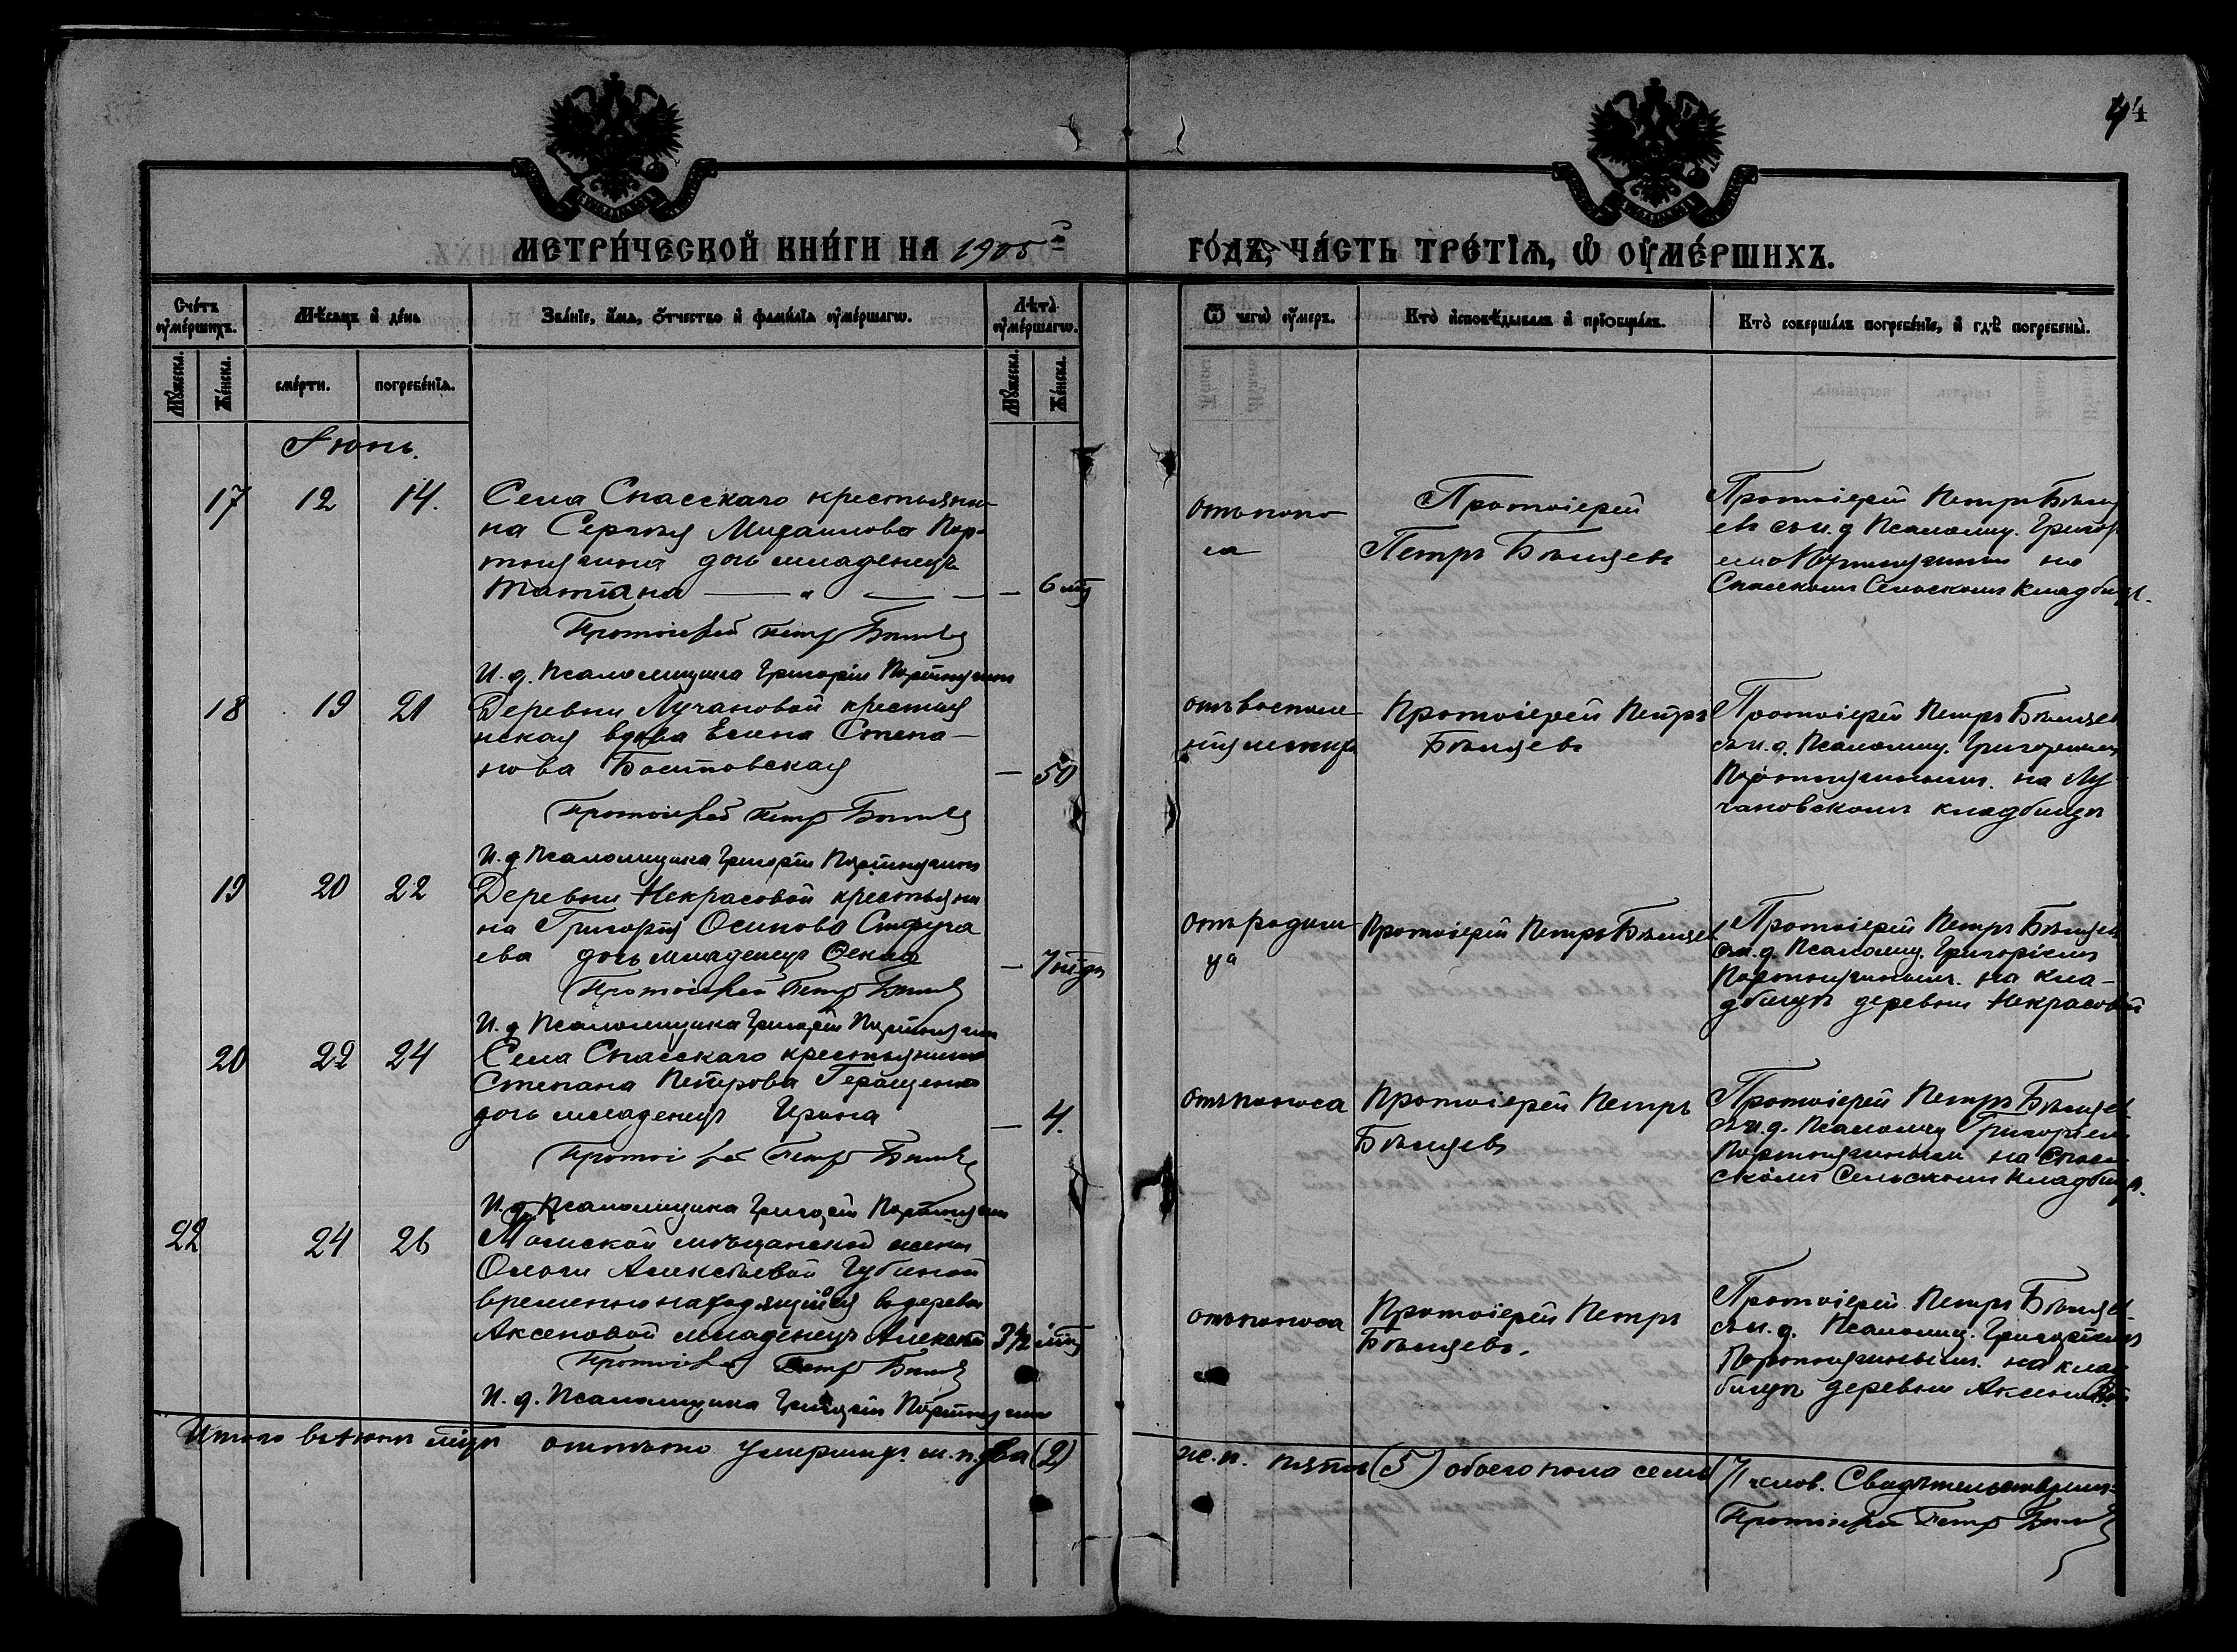 44
МЕТРИ́ЧЕСКОЙ КНИ́ГИ НА 1905 й
ГО́ДЪ, ЧА́СТЬ ТРЕ́ТІѦ, Ѡ ОУМЕ́РШИХЪ.
Сче́тъ оумершихъ.
Мѣ́сѧцъ и де́нь
Зва́нїе, и́мѧ, о́тчество и фами́лїѧ оуме́ршагѡ.
Лѣта̀ оуме́ршагѡ.
Ѿ чегѡ̀ оу́меръ.
Кто̀ и҆сповѣ́дывалъ и прїобща́лъ.
Кто̀ соверша́лъ погребе́нїе, и гдѣ̀ погребены̀.
Мꙋ́жеска.
Же́нска.
сме́рти.
погребе́нїѧ.
Мꙋ́жеска.
Же́нска.
Іюнь.
17 12 14.
Села Спасскаго крестьяни-
на Сергѣя Михаилова Пор-
тнягина дочь младенецъ
Татіана — „ — — — 6 мц
Протоіерей Петръ Бѣляевъ
И. д. Псаломщика Григорій Портнягинъ
отъ поно
са
Протоіерей
Петръ Бѣляевъ
Протоіерей Петръ Бѣля
евъ съ и. д. Псаломщ. Григор
емъ Портнягинымъ на
Спасскомъ Сельскомъ кладбищѣ.
18 19 21
Деревни Лучановой крестья
нская вдова Елена Степа-
нова Болтовская — 50
Протоіерей Петръ Бѣляевъ
И. д. Псаломщика Григорій Портнягинъ
отъ воспале
нія
Протоіерей Петръ
Бѣляевъ
Протоіерей Петръ Бѣляевъ
съ и. д. Псаломщ. Григоріемъ
Портнягинымъ. на Лу
чановскомъ кладбищѣ
19 20 22
Деревни Некрасовой крестьяни
на Григорія Осипова
ева дочь младенецъ — 7 нѣд
Протоіерей Петръ Бѣляевъ
И. д. Псаломщика Григорій Портнягинъ
отъ родим
ца
Протоіерей Петръ Бѣляевъ
Протоіерей Петръ Бѣляевъ
съ и. д. Псаломщ. Григоріемъ
Портнягинымъ. на кла-
дбищѣ деревни Некрасовой
20 22 24
Села Спасскаго крестьянина
Степана Петрова Геращенко
дочь младенецъ Ирина — 4.
Протоіерей Петръ Бѣляевъ
И. д. Псаломщика Григорій Портнягинъ
отъ поноса
Протоіерей Петръ
Бѣляевъ
Протоіерей Петръ Бѣляев
съ и. д. Псаломщ Григоріем
Портнягинымъ на Спас-
скомъ Сельскомъ кладбищѣ.
22 24 26
Томской мѣщанской жены
Ольги Алексѣевой Губиной
временно находящійся въ деревни
Аксеновой младенецъ Алексѣй 3½ мц
Протоіерей Петръ Бѣляевъ
И. д. Псаломщика Григорій Портнягинъ
отъ поноса
Протоіерей Петръ
Бѣляевъ.
Протоіерей Петръ Бѣляев
съ и. д. Псаломщ. Григоріемъ
Портнягинымъ. на клад
бищѣ деревни Аксеновой
Итого въ Іюнѣ мѣцѣ отпѣто умершихъ м. п. два (2)
ж. п. пять (5) обоего пола семь (7) челов. Свидѣтельствуемъ:
Протоіерей Петръ Бѣляевъ